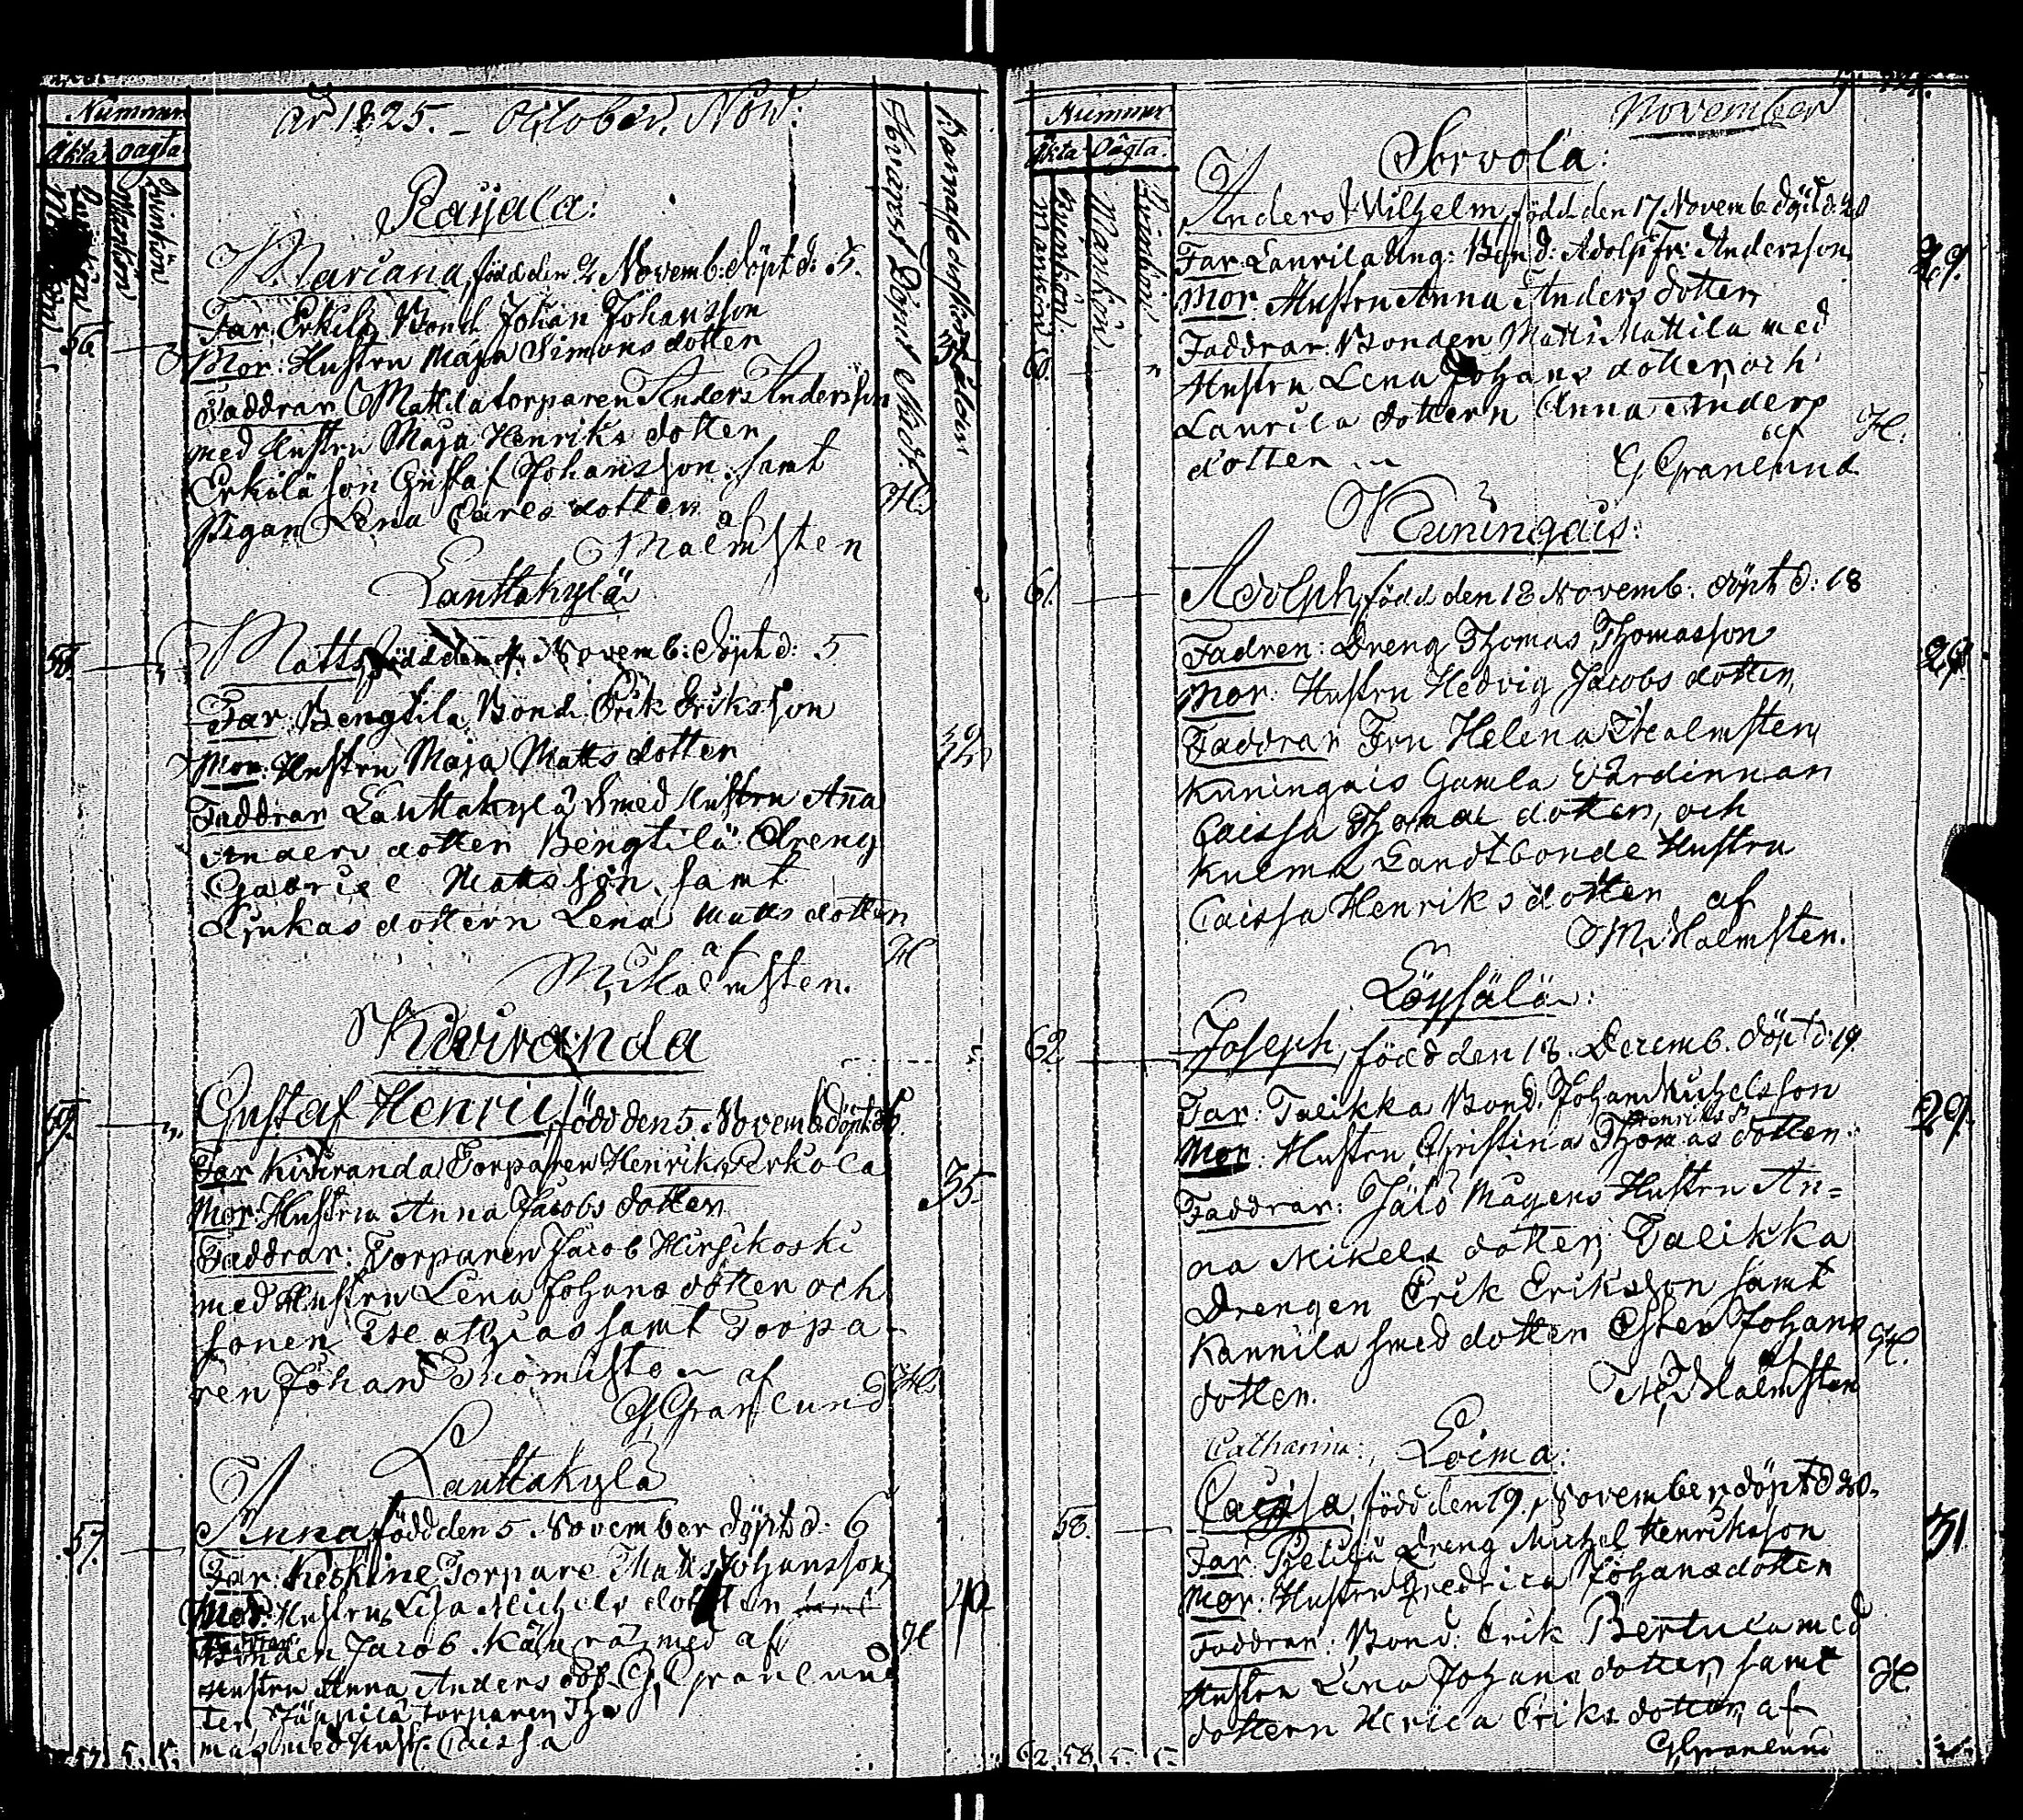 Nummer
Äkta oägta
Qvinkön
Mankön
Qvinkön
år 1825. – October. Nov:
Hvarest Döpnt skedt.
Barnaföderskans ålder
Raijala:
Mariana, född den 2 Novemb: döpt d: 5.
Far: Erkilä Bond Johan Johansson
56.
Mor: Hustru Maja Simons dotter
Faddrar Mattila torparen Anders Andersson
med Hustru Maja Henriks dotter
Erkilä son Gustaf Johansson samt
H.
pigan Lena Carls dotter af
Malmsten
Lauttakylä
58.
Matts, född den 4. Novemb: döpt d: 5
Far: Bengtilä Bond: Erik Eriksson
32
Mor: Hustru Maja Matts dotter
Faddrar Lauttakylä Smed Hustru Anna
Anders dotter Bengtilä Dreng
Gabriel Mattsson, samt
dottern Lena Matts dotter
af
H
M, Malmsten.
Kiviranda
59.
Gustaf Henric, född den 5 Novemb döpt d 6.
Far Kiviranda Torparen Henrik Perkola
35.
Mor: Hustru Anna Jacobs dotter
Faddrar: Torparen Jacob Hirsikoski
med Hustru Lena Johans dotter och
sonen Mathias samt Torpa-
ren Johan Tuomisto af
H.
G, Granlund
Lauttakylä
57.
Anna, född den 5 November döpt d: 6
Far: Keskine Torpare Matts Johansson
40
Mor: Hustru Lisa Michels dotter
Faddrar
Bonden Jacob med af
H
Hustru Anna Anders dot G, Granlund
ter, torparen Tho
mas med Hust: Caisa
57. 5. 5.
November
Nummer
Äkta Oägta.
Mankön
Qvinkön
Mankön
Qvinkön
Sorvola:
Anders Wilhelm, född den 17 Novemb. döpt d: 20
Far: Laurila Ung: Bond: Adolf Fr: Andersson
29.
Mor: Hustru Anna Anders dotter
Faddrar: Bonden Matts Mattila med
60.
Hustru Lena Johans dotter, och
Laurila dottern Anna Anders
dotter af
H.
G Granlund
Kuningais:
61.
Adolph, född den 18 Novemb: döpt d: 18
Fadren: Dreng Thomas Thomasson
29
Mor: Hustru Hedvig Jacobs dotter,
Faddrar Fru Helena Malmsten,
Kuningais Gamla Värdinnan
Caissa Thomas dotter, och
Kulma Landtbonde Hustru
Caissa Henriks dotter af
M, Malmsten.
Löysälä:
62
Joseph, född den 18. Decemb. döpt d: 19.
Far: Talikka Bond: Johan Michelsson
Henriks
29.
Mor: Hustru Christina Thomas dotter
Faddrar: Jälö Mågens Hustru An=
na Mikels dotter, Talikka
Drengen Erik Eriksson samt
Kannila smed dotter Ester Johans
H.
dotter. af
M, Malmsten
Catharina:, Loima:
Caijsa, född den 19. November döpt d 20.
58.
31
Far: Dreng Michel Henriksson
Mor: Hustru Fredrica Johansdotter
Faddrar: Bond: Erik Bertula med
Hustru Lena Johans dotter, samt
H.
dottern Ulrica Eriks dotter, af
G Granlund
62. 58. 5. 5.